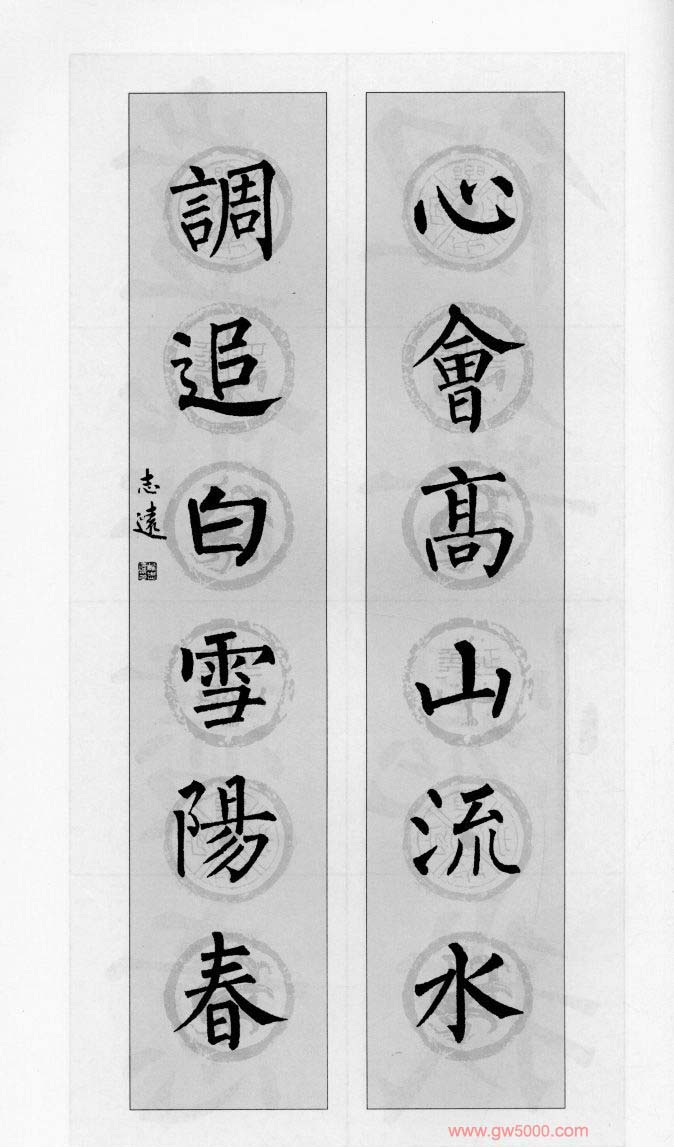 心會高山流水
調追白雪陽春
志遠
www.gw5000.com